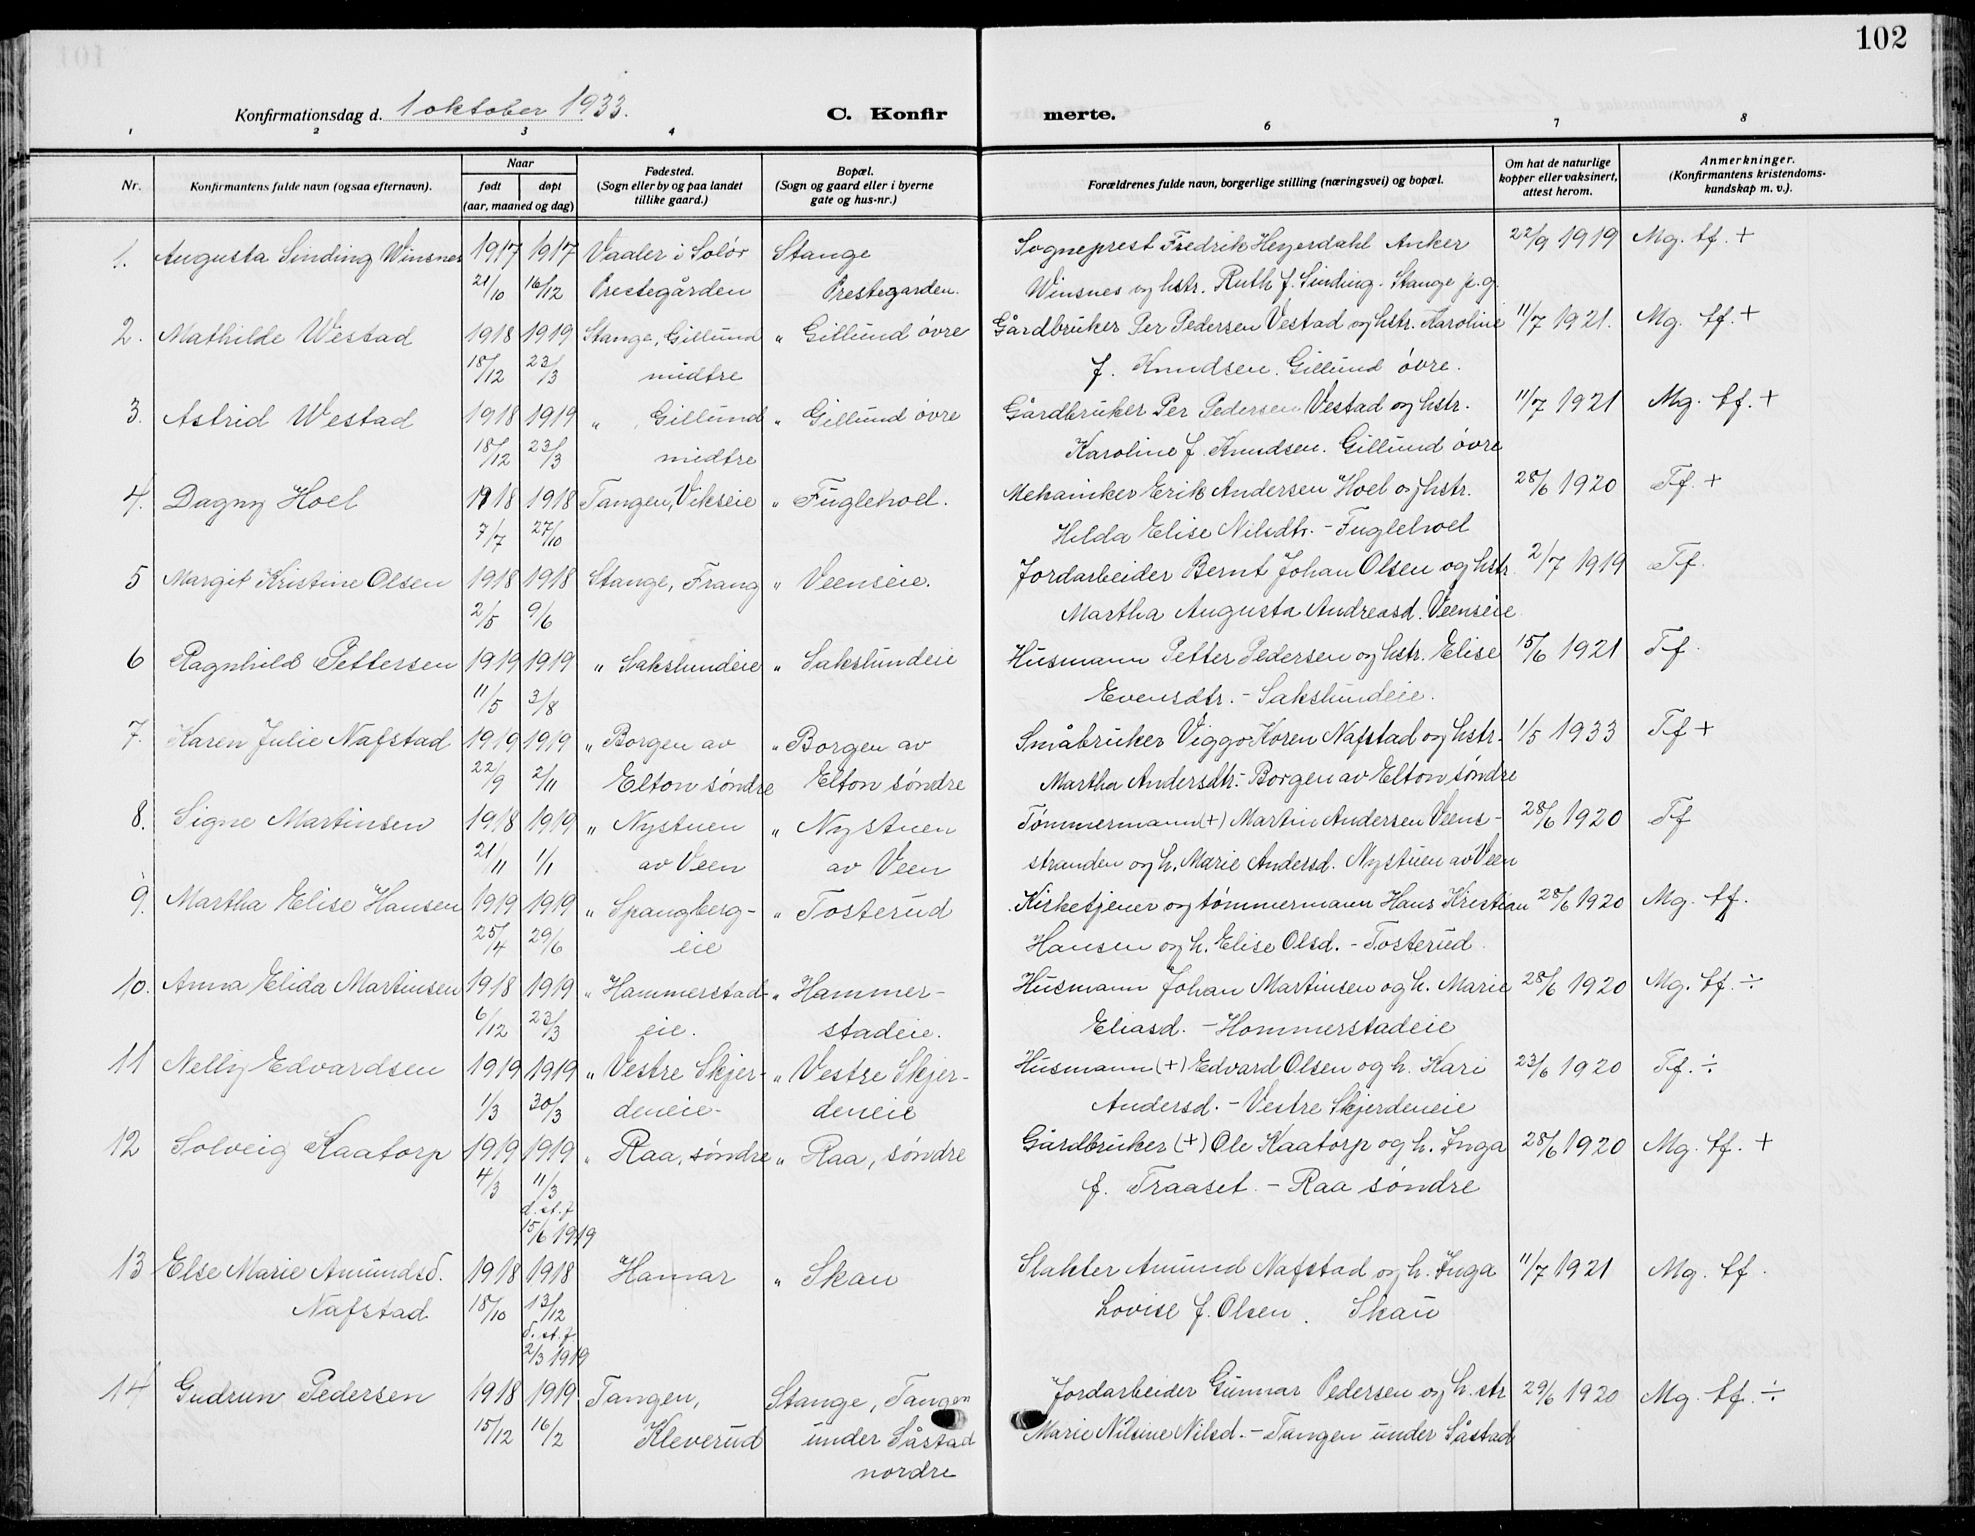 102
Konfirmationsdag d. 1 oktober 1933. C. Konfir merte.
1 2 3 4 5 6 7 8
Nr. Konfirmantens fulde navn (ogsaa efternavn). Naar født døpt (aar, maaned og dag) Fødested. (Sogn eller by og paa landet tillike gaard.) Bopæl. (Sogn og gaard eller i byerne gate og hus-nr.) Forældrenes fulde navn, borgerlige stilling (næringsvei) og bopæl. Om hat de naturlige kopper eller vaksinert, attest herom. Anmerkninger. (Konfirmantens kristendoms- kundskap m. v.).
1. Augusta Sinding Winsnes 1917 1917 Vaaler i Solør Stange Sogneprest Fredrik Heyerdahl Anker 22/9 1919 Mg. tf. +
21/10 16/12 Prestegården Prestegarden. Winsnes og hstr. Ruth f. Sinding. Stange p.g.
2. Mathilde Westad 1918 1919 Stange, Gillund " Gillund övre Gårdbruker Per Pedersen Vestad og hstr. Karoline 11/7 1921. Mg. tf. +
18/12 23/3 midtre f. Knudsen. Gillund övre.
3. Astrid Westad 1918 1919 " Gillund " Gillund övre Gårdbruker Per Pedersen Vestad og hstr. 11/7 1921 Mg. tf. +
18/12 23/3 midtre Karoline f. Knudsen. Gillund övre
4. Dagny Hoel 1918 1918 Tangen, Vikseie " Fuglehoel. Mekaniker Erik Andersen Hoel og hstr. 28/6 1920 Tf. +
7/7 27/10 Hilda Elise Nilsdtr. - Fuglehoel
5 Margit Kristine Olsen 1918 1918 Stange, Frang " Veenseie. Jordarbeider Bernt Johan Olsen og hstr. 2/7 1919 Tf.
2/5 9/6 Martha Augusta Andreasd. Veenseie
6 Ragnhild Pettersen 1919 1919 " Sakslundeie " Sakslundeie Husmann Petter Pedersen og hstr. Elise 15/6 1921 Tf.
11/5 3/8 Evensdtr. - Sakslundeie.
7. Karen Julie Nafstad 1919 1919 " Borgen av " Borgen av Småbruker Viggo Koren Nafstad og hstr. 1/5 1933 Tf +
22/9 2/11 Elton søndre Elton søndre Martha Andersdtr. - Borgen av Elton søndre
8. Signe Martinsen 1918 1919 " Nystuen " Nystuen Tömmermann (+) Martin Andersen Veens- 28/6 1920 Tf
21/11 1/1 av Veen av Veen stranden og h. Marie Andersd. Nystuen av Veen
9. Martha Elise Hansen 1919 1919 " Spangberg- " Tosterud Kirketjener og tømmermann Hans Kristian 28/6 1920 Mg. tf.
25/4 29/6 eie Hansen og h. Elise Olsd. - Tosterud.
10. Anna Elida Martinsen 1918 1919 " Hammerstad- " Hammer- Husmann Johan Martinsen og h. Marie 28/6 1920 Mg. tf. ÷
6/12 23/3 eie. stadeie. Eliasd. - Hommerstadeie
11 Nelly Edvardsen 1919 1919 " Vestre Skjer- " Vestre Skjer- Husmann (+) Edvard Olsen og h. Kari 23/6 1920 Tf. ÷
1/3 30/3 deneie- deneie Andersd. - Vestre Skjerdeneie
12 Solveig Kaatorp 1919 1919 " Raa, søndre " Raa, søndre Gårdbruker (+) Ole Kaatorp og h. Inga 28/6 1920 Mg. tf. +
4/3 11/3 f. Traaset. - Raa søndre
d. st. f
15/6 1919
13 Else Marie Amundsd. 1918 1918 Hamar " Skau Slakter Amund Nafstad og h. Inga 11/7 1921 Mg. tf.
Nafstad 18/10 13/12 Lovise f. Olsen. Skau
d. st. f.
2/3 1919
14 Gudrun Pedersen 1918 1919 Tangen, Stange, Tangen Jordarbeider Gunnar Pedersen og h. str 29/6 1920 Mg. tf. ÷
15/12 16/2 Kleverud under Såstad Marie Nilsine Nilsd. - Tangen under Såstad
nordre